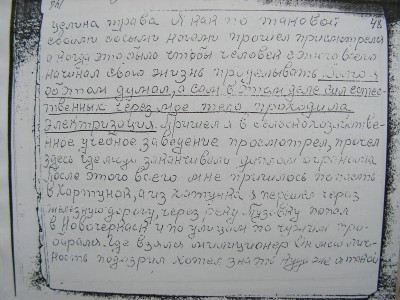 48
целина трава Я как по таковой
своими босыми ногами прошел присмотрелся
а когда это было чтобы человек с этого всего
начинал свою жизнь проделывать
об этом думал, а сам в этом деле естест-
твенных через мое тело проходила
электризация. Пришел я в сельскохозяйстве-
нное учебное заведение просмотрел, прочел
здесь где люди заканчивали учатся агронома
После этого всего мне пришлось попасть
в Хартунок, а из Хатунка я перешел через
железную дорогу, через реку Тузовку попал
в Новочеркаск, и по улицам по чужим при-
бирался. Где взялся милиционер он мою лич-
ность подозрил хотел знать куда же я такой